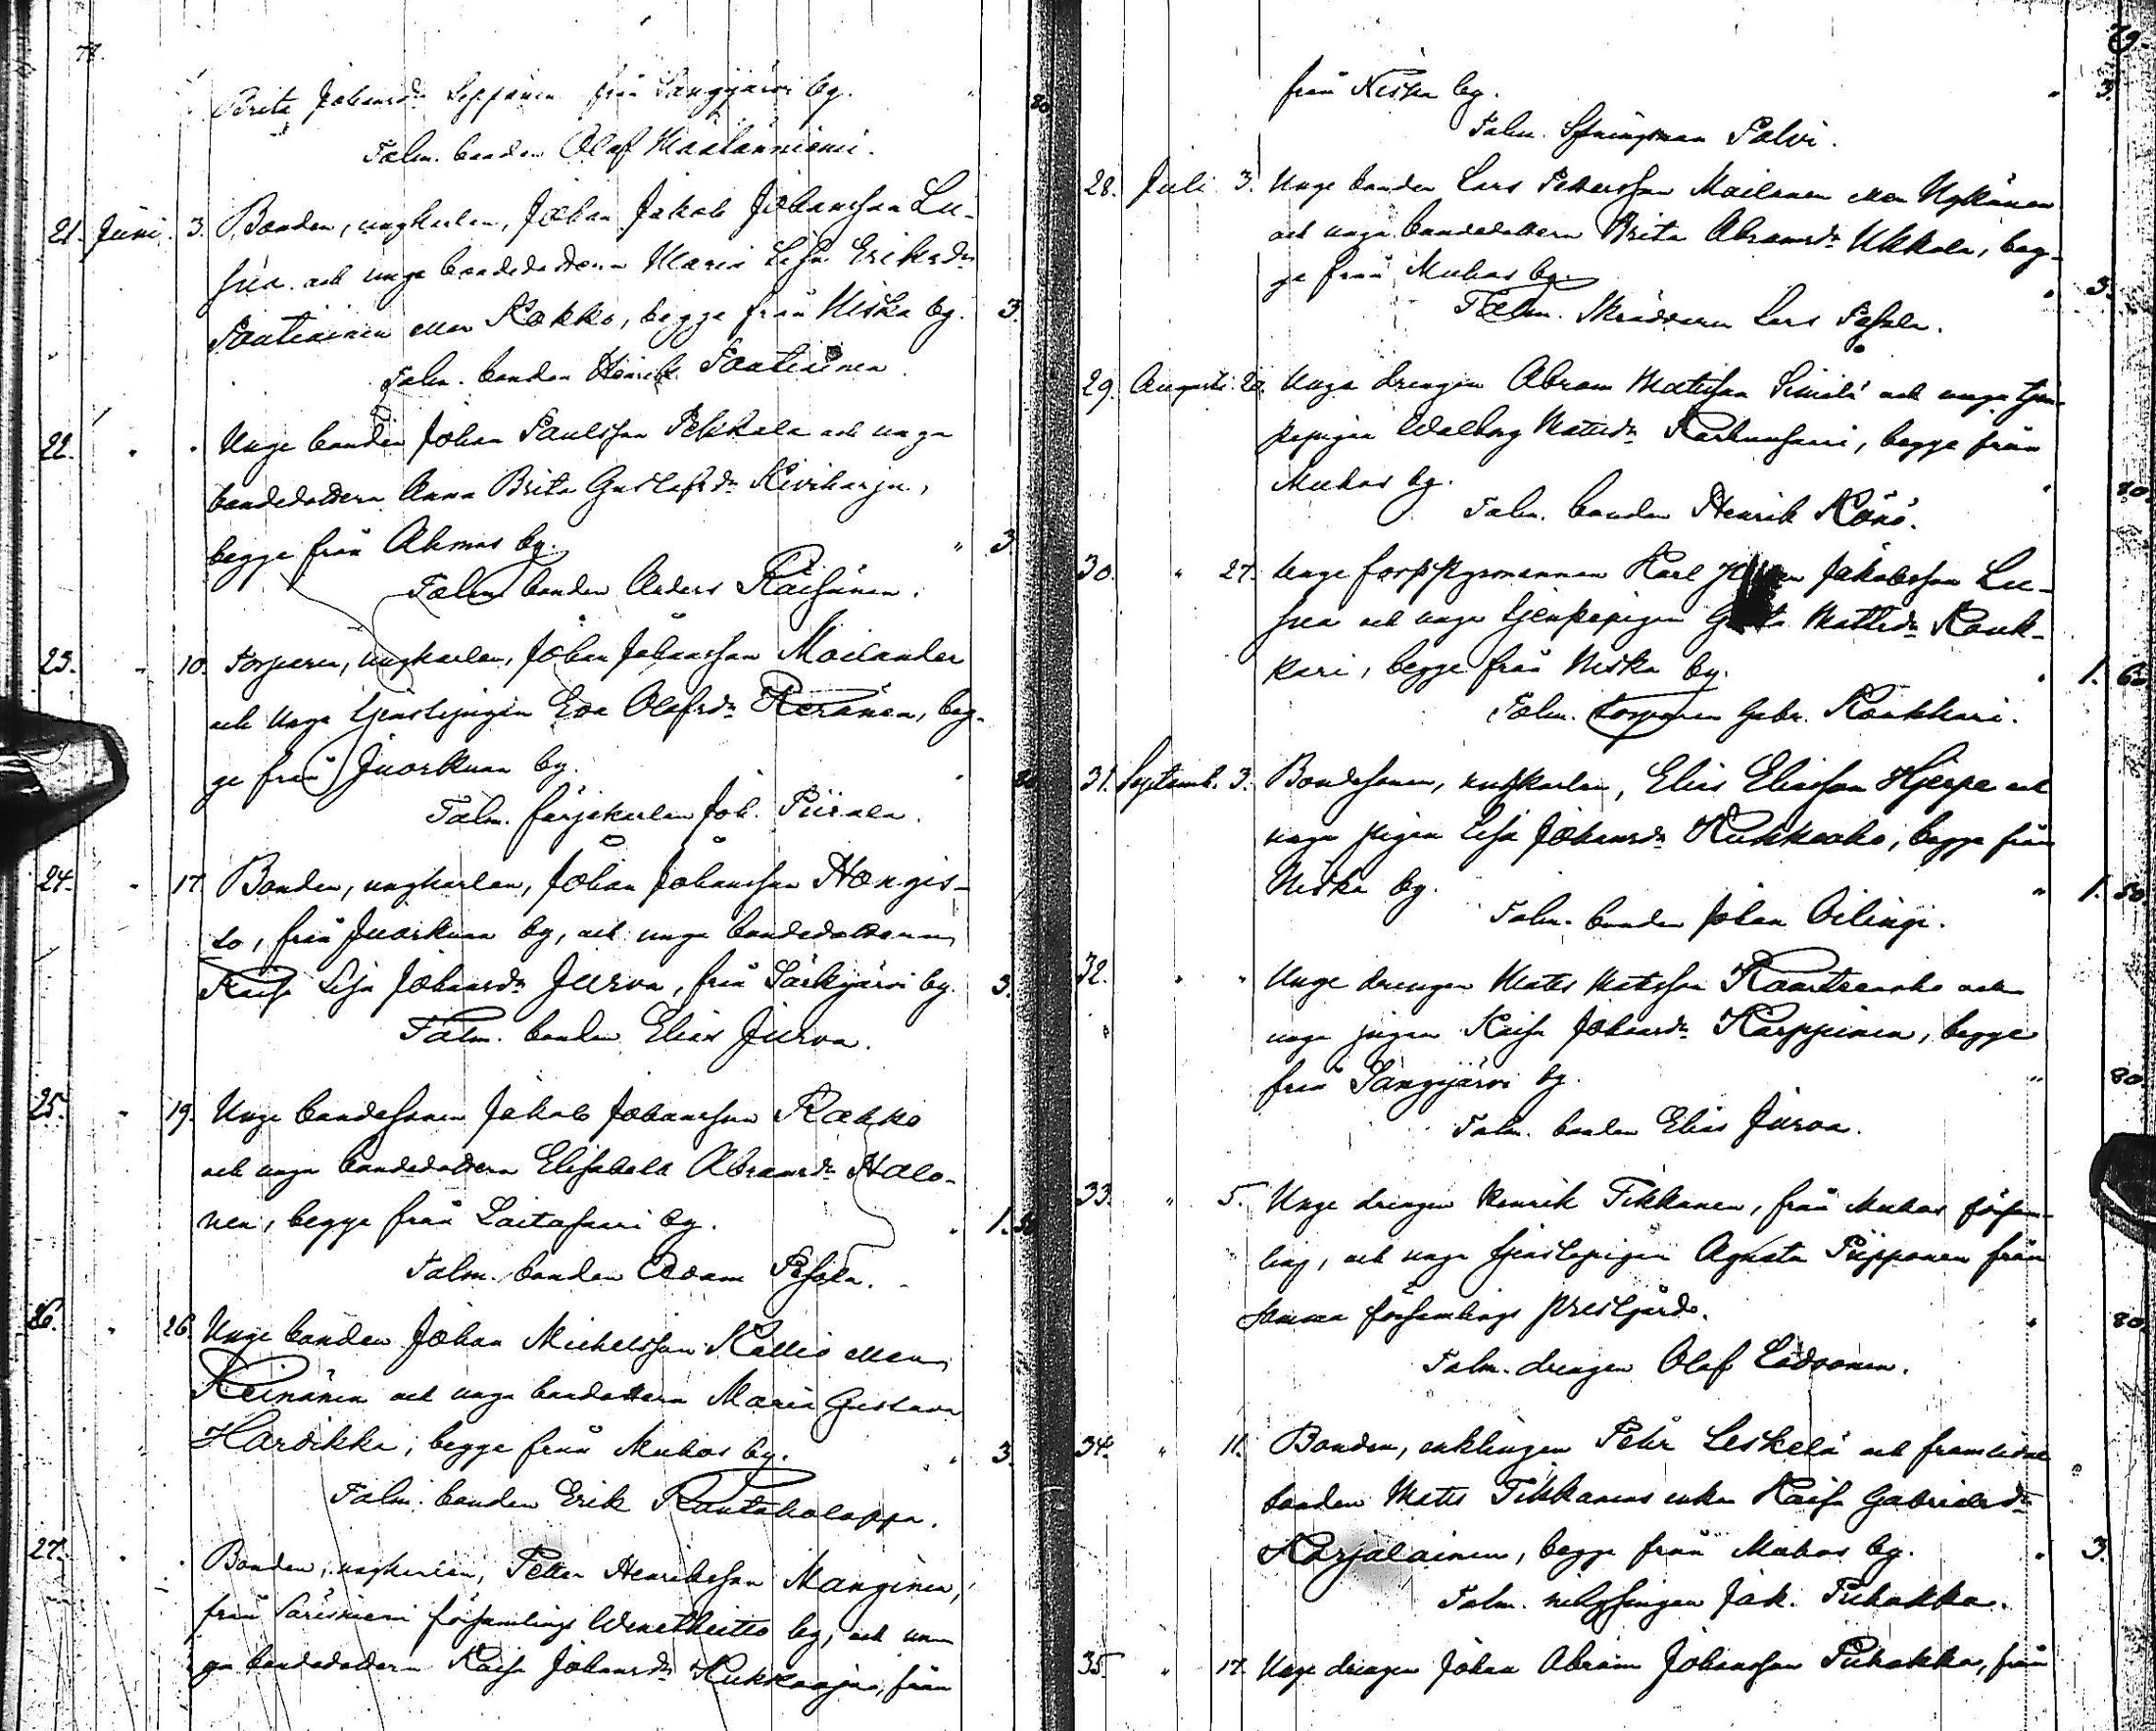 78.
Brita Johansdr Seppänen från Sangijärvi by. " 80
Talm. bonden Olof Määtänniemi.
21. Juni. 3. Bonden, ungkarlen, Johan Jakob Johansson Lu-
sua och unga bondedottern Maria Lisa Eriksdr
Pontinainen eller Kokko, begge från Niska by. 3.
Talm. bonden Henrik
22. " " Unge bonden Johan Paulsson Pekkala och unga
bondedottern Anna Brita Gustafsdr Kiviharju,
begge från Ahmas by. " 3
Talm. bonden Anders Räisänen.
23. " 10. Torparen, ungkarlen, Johan Johansson Moilander
och unga tjenstepigen Eva Olofsdr Keränen, beg-
ge från Juorkuna by. " 80
Talm. färjekarlen Joh. Piirala.
24. " 17 Bonden, ungkarlen, Johan Johansson Hongis-
to, från Juorkuna by, och unga bondedottern
Kaisa Lisa Johansdr Jurva, från Särkijärvi by. 3.
Talm. bonden Elias Jurva.
25. " 19. Unge bondesonen Jakob Johansson Kokko
och unga bondedottern Elisabeth Abramsdr Halo-
nen, begge från Laitasaari by. " 1. 50
Talm. bonden Adam Pesola.
26. " 26. Unge bonden Johan Michelsson Kallio eller
Keinänen och unga bondottern Maria Gustava
Hardikka, begge från Muhos by. " 3.
Talm. bonden Erik Rantaholappa.
27. " " Bonden, ungkarlen, Petter Henriksson Manginen,
från Säresniemi församlings Wenetheitto by, och un-
ga bondedottern Kaisa Johansdr från
79
från Niska by. " 3.
Talm. Palvi.
28. Juli 3. Unge bonden Lars Petersson Moilanen eller Nykänen
och unga bondedottern Brita Abramsdr Ukkola, beg-
ge från Muhos by. " 3.
Talm. skräddaren Lars Pesola.
29. Augusti 20. Unga drengen Abram Matsson Similä och unga tjen-
stepigen Walborg Matsdr Karhunsaari, begge från
Muhos by. " 80.
Talm. bonden Henrik Könö.
30. " 27. Unge Karl Jakobsson Lu-
sua och unga tjenstepigen Mattsdr Kouk-
kari, begge från Niska by. " 1. 60
Talm. torparen Gabr. Koukkari.
31. Septemb. 3. Bondesonen, ungkarlen, Elias Eliasson Hjerpe och
unga pigan Lisa Johansdr begge från
Niska by. " 1. 50
Talm. bonden Johan Oilinge.
32. " " Unge drengen Mats Matsson och
unga pigan Kaisa Johansdr Karppinen, begge
från Sangijärvi by. " 80.
Talm. bonden Elias Jurva.
33. " 5. Unge drengen Henrik Tikkanen, från Muhos försam-
ling, och unga tjenstepigen Agneta Piipponen från
samma församlings prestgård. " 80.
Talm. drengen Olof
34. " 11. Bonden, enklingen Petr Leskelä och framlidne
bonden Mats Tikkanens enka Kaisa Gabrielsdr
Karjalainen, begge från Muhos by. " 3.
Talm. inhysingen Jak. Puhakka.
35 " 17. Unge drengen Johan Abram Johansson Puhakka, från